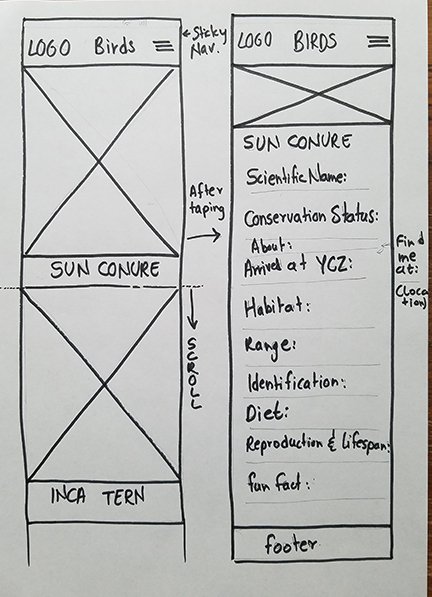 LOGO Birds
←Sticky Nav.
SUN CONURE
SCROLL
INCA TERN
After
taping
LOGO BIRDS
SUN CONURE
Scientific Name:
Conservation Status:
About:
Arrived at YCZ:
Habitat:
Range:
Identification:
Diet:
Reproduction & Lifespan:
fun fact:
footer
Find
me
at:
(Loca
tion)